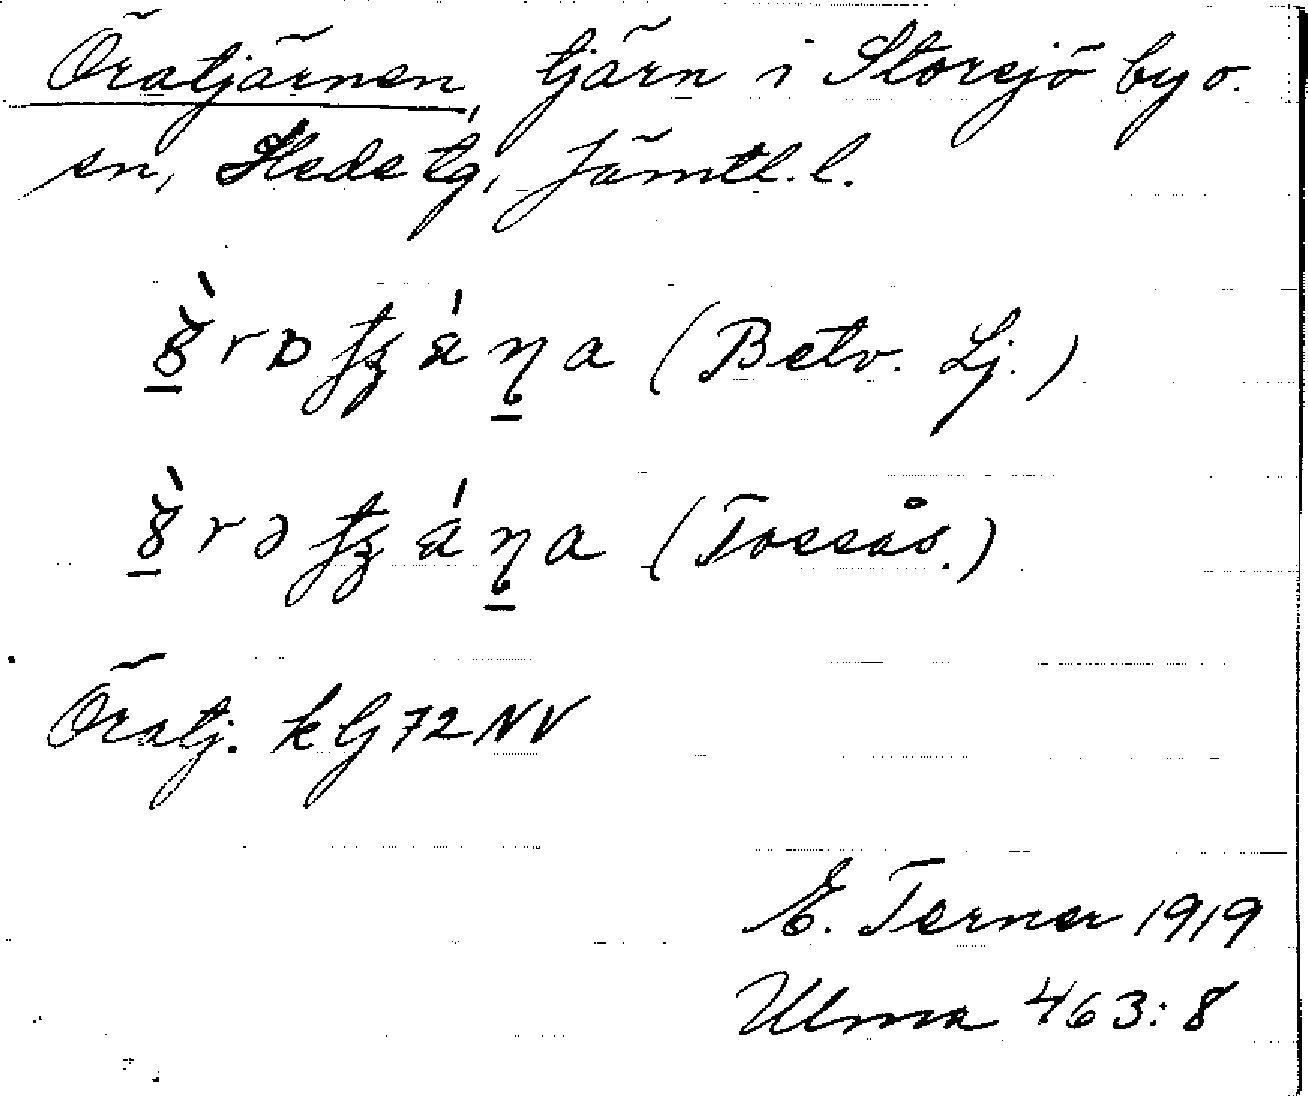 Öratjärnen, tjärn i Storsjö by o.
sn, Hede tg, Jämtl. l.
(Betv. Lj.)
(Tossås.)
Öratj. k lj 72 NV
E. Terner 1919
Ulma 463:8